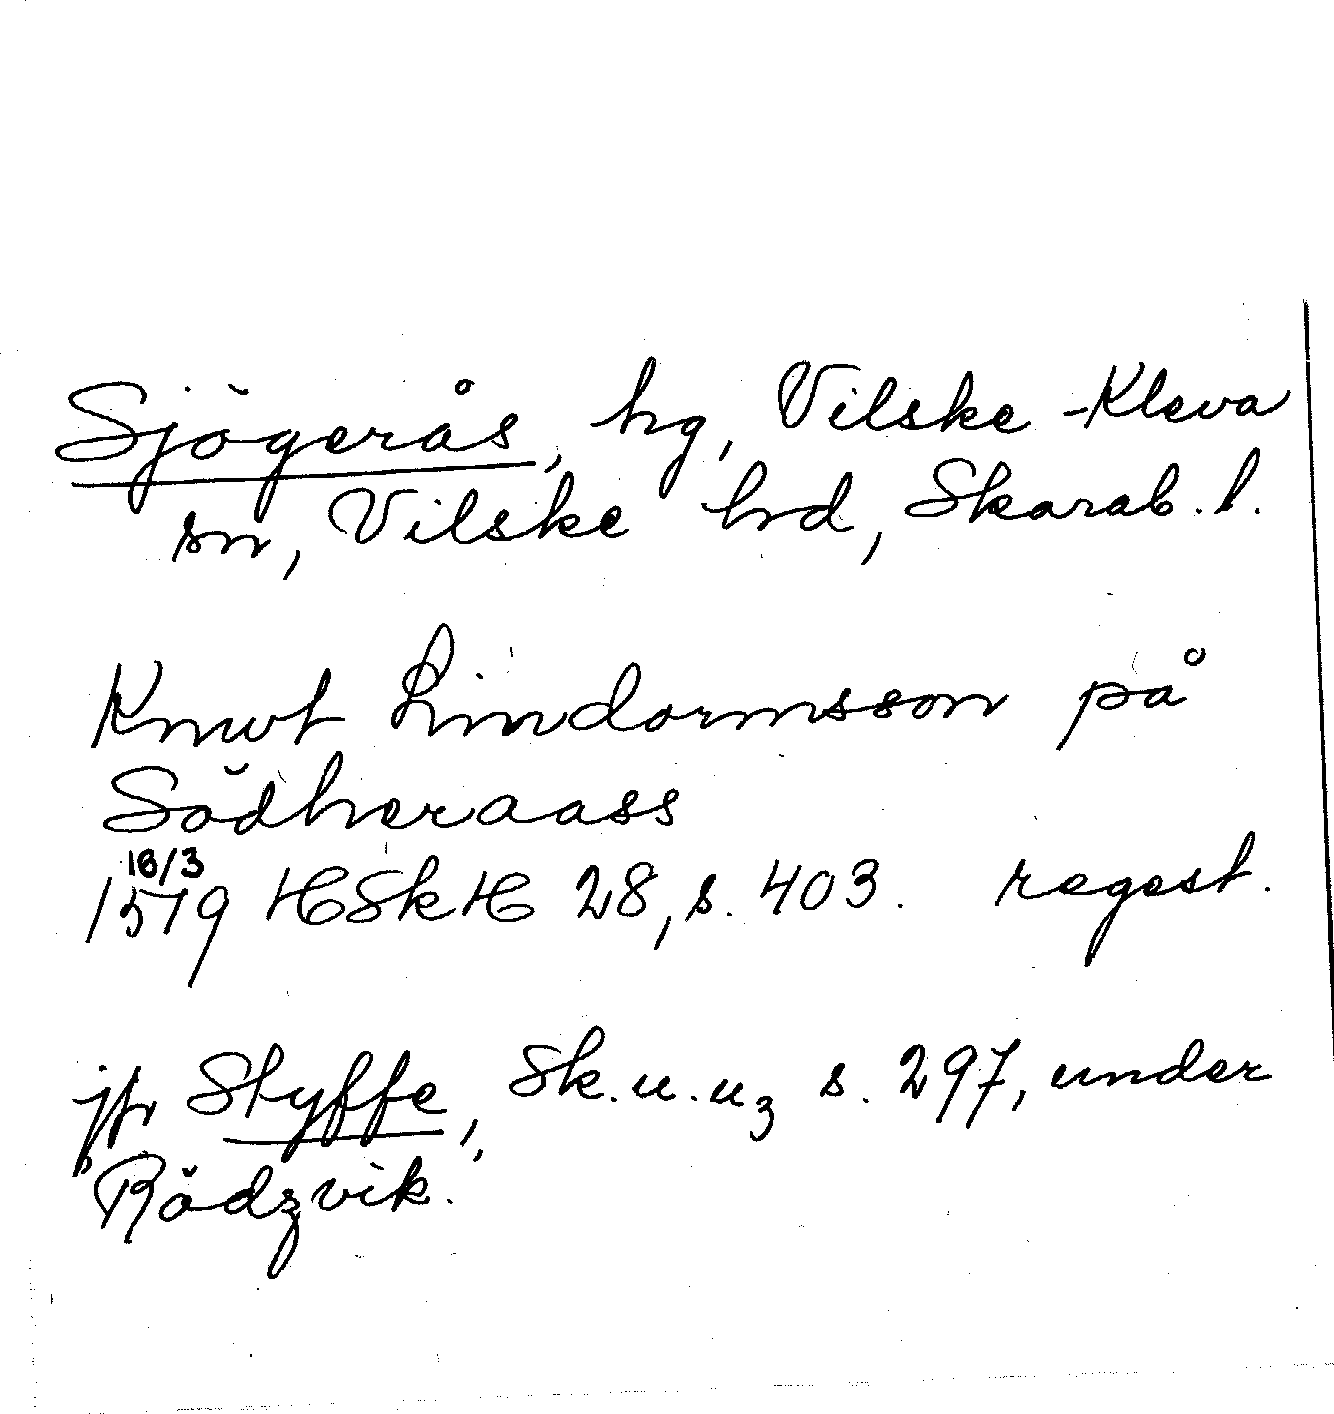 Sjögerås, hg, Vilske-Kleva
sn, Vilske hd, Skarab. l.
Knwt Lindormsson på
Södheraass
18/3
1579 HSkH 28, s. 403. regest.
jfr Styffe, Sk.u.u3 s. 297, under
Rödzvik.